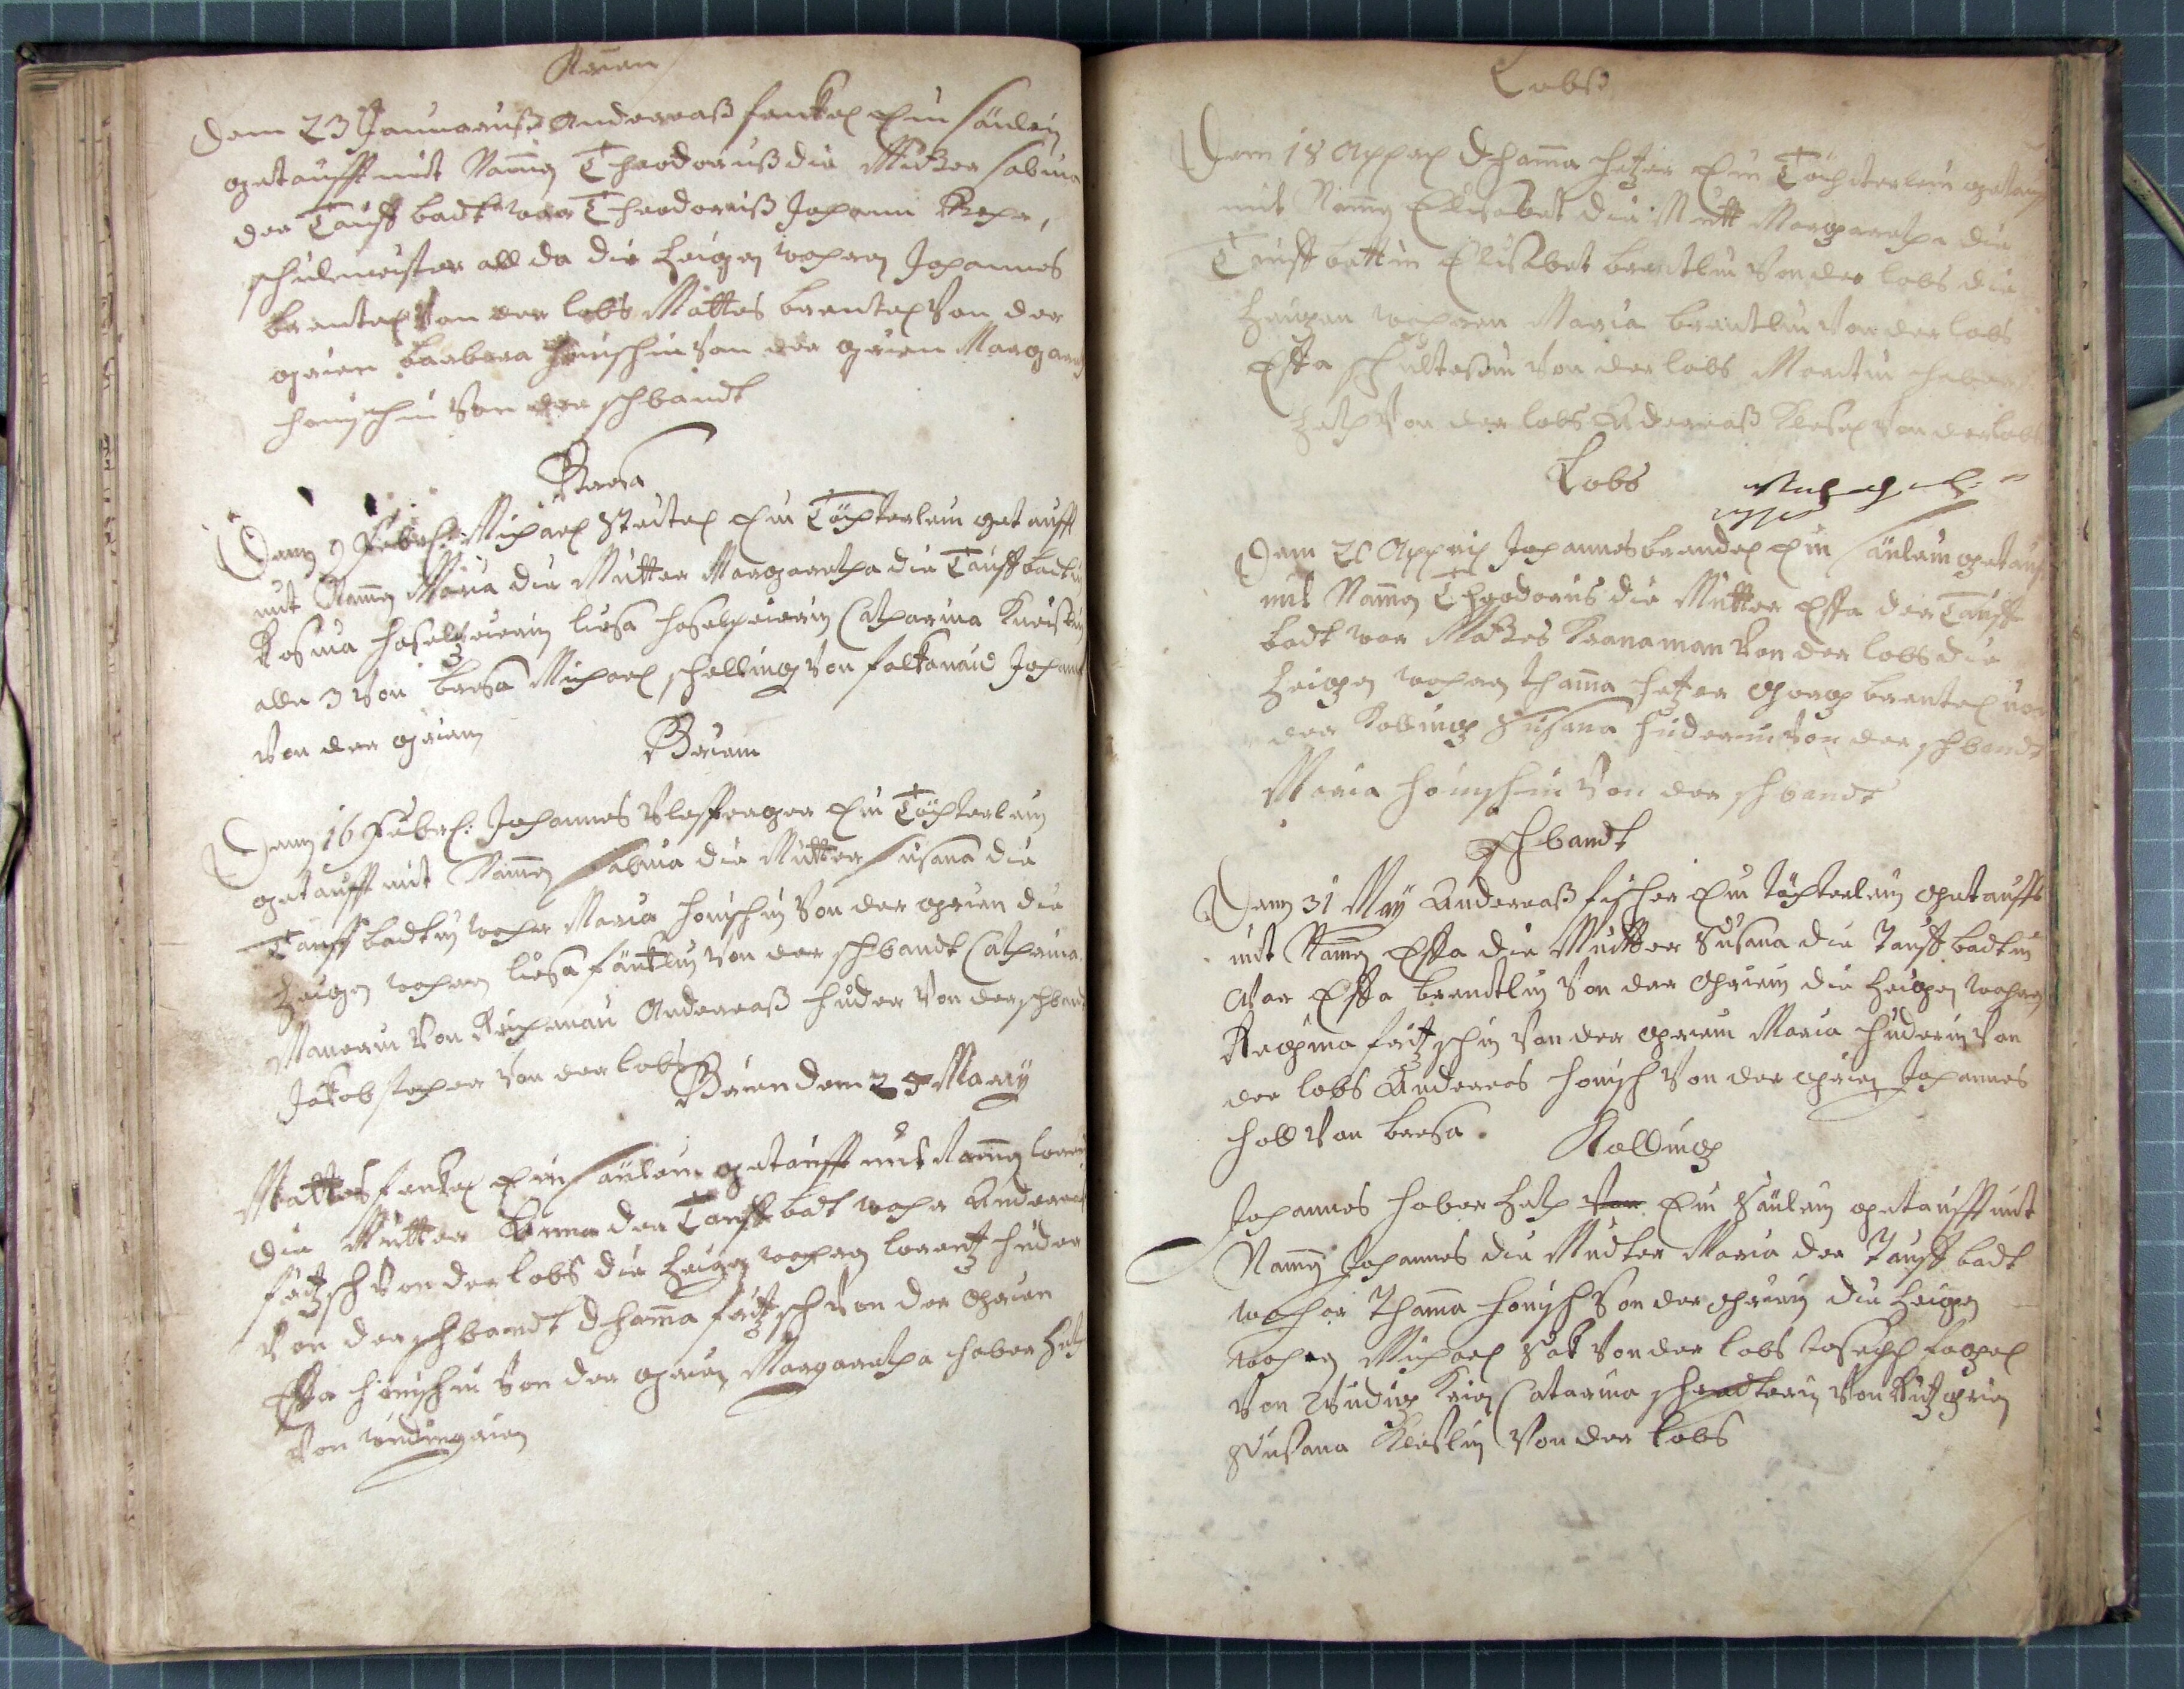 Grien
Dem 23 Januaruß Andereaß fenkel Ein sünlein
getaufft mit Namen Theodoruß die Mutter sabina
der Tauff badt war Theodoruß Johann
schulmeister all da die Zeigen wahren Johannes
brentel Von der lobs Mattes brentel Von der
grien barbera Hönischin Von der grien Margaret
hönischin Von der schbandt
Bresa
Denn 9 Febrl: Michael Ein Töchterlein getaufft
mit Namen Maria die Mutter Margaretha die Tauff badtin
Rosina liesa Catharina
alle 3 Von bresa Michael schelling Von falkenaud Johann
Von der grien
Griem
Denn 16 Febrl: Johannes Ein Töchterlein
getaufft mit Namen sabina die Mutter susana die
Tauff badtin wahr Maria hönischin Von der grien die
Zeigen wahren liesa fänklin Von der schbandt Catharina
Manerin Von Reichenau Andereaß huder Von der schbandt
Jakob Von der lobs
Grien dem 29 Marzy
Mattes fenkel Ein sünlein getaufft mit Namen loren
die Mutter Anna der Tauff badt wahr Andereaß
fritzsch Von der lobs die Zeigen wahren lorentz huder
Von der schbandt Dhama fritzsch Von der grien
Effa hönischin Von der grien Margaretha haber
Von
Lobß
Dem 18 Appril Dhama hetzer Ein Töchterlein getauf
mit Namen Elisabet die Mutt Margaretha die
Tauff battin Elisabet brentlin Von der lobs die
Zeugen wahren Maria brentlin Von der lobs
Effa schultesin Von der lobs Martin haber
Zetl Von der lobs Andereaß Klesel Von der lobs
Lobs
Dem 20 Appril Johannes brendel Ein sünlein getauf
mit Namen Theodorus die Mutter Effa der Tauff
badt war Mattes Kranaman Von der lobs die
Zeigen wahren Thama hetzer Georg brentel Von
der Kolling Susana huderin Von der schbandt
Maria hönischin Von der schbandt
Schbandt
Denn 31 May Andereaß fischer Ein töchterlein getaufft
mit Namen Effa die Mutter Susana die Tauff badtin
War Effa brendtlin Von der Grien die Zeigen wahren
Regina fritzschin Von der grien Maria huderin Von
der lobs Andereas hönisch Von der grien Johannes
holl Von bresa.
Kolling
Johannes haber Zetl Von Ein Sünlein getaufft mit
Namen Johannes die Mutter Maria der Tauff badt
wahr Thama hönisch Von der grien die Zeigen
wahren Michael Von der lobs Joseph
Von Catarina Von
Susana Kleslin Von der lobs